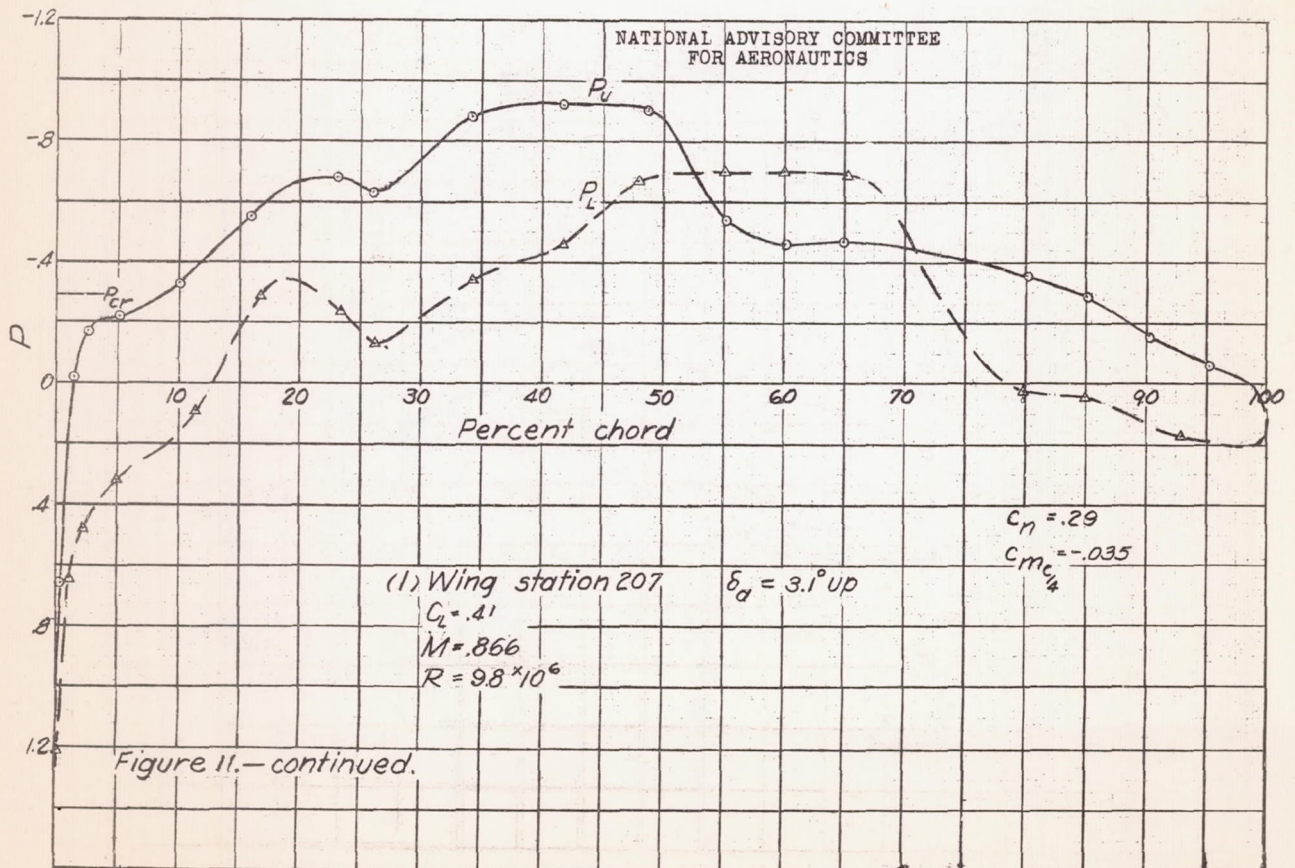 -1.2
NATIONAL ADVISORY COMMITTEE
FOR AERONAUTICS
Pu
-.8
PL
-.4
Pcr
P
0
10 20 30 40 50 60 70 90 100
Percent chord
.4
cn = .29
cmc/4 = -.035
(l) Wing station 207 δa = 3.1° up
CL = .41
.8
M = .866
R = 9.8 x 10^6
1.2
Figure 11.— continued.